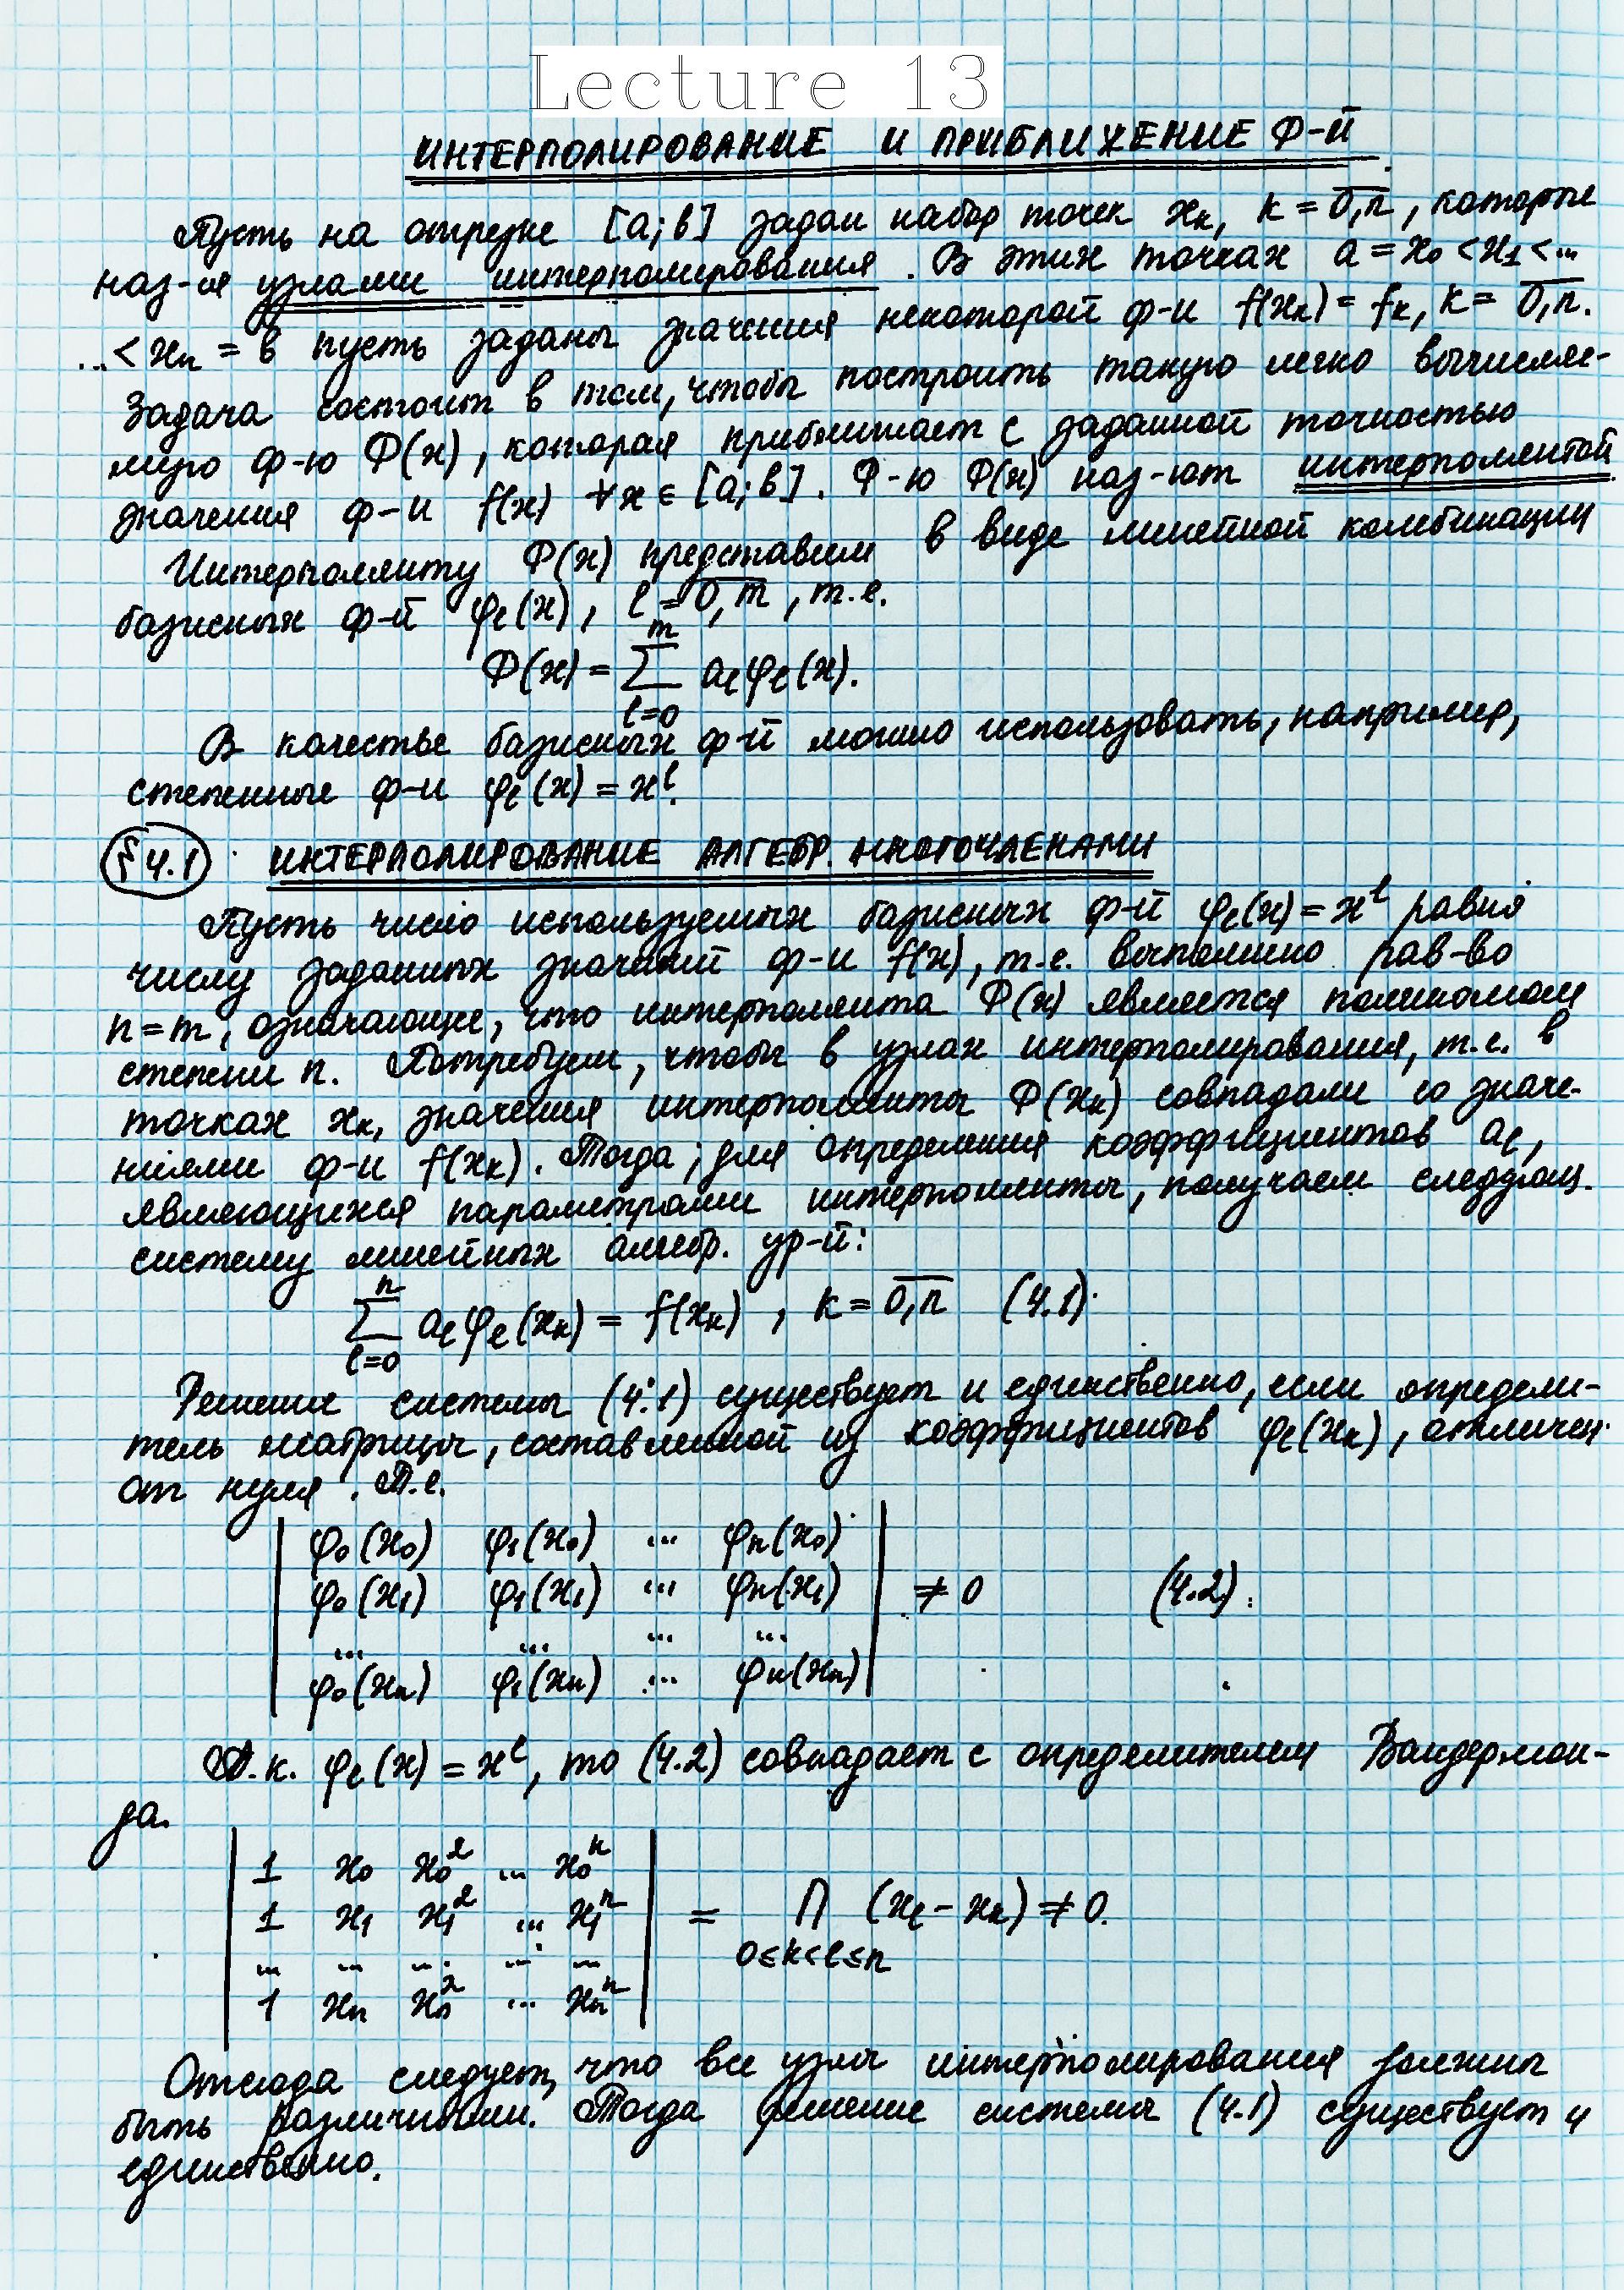 Lecture 13
ИНТЕРПОЛИРОВАНИЕ И ПРИБЛИЖЕНИЕ Ф-Й
Пусть на отрезке [a; b] задан набор точек xₖ, k = 0,n̅, которые
наз-ся узлами интерполирования. В этих точках a = x₀ < x₁ < ...
... < xₙ = b пусть заданы значения некоторой ф-и f(xₖ) = fₖ, k = 0,n̅.
Задача состоит в том, чтобы построить такую легко вычисляе-
мую ф-ю Φ(x), которая приближает с заданной точностью
значения ф-и f(x) ∀x ∈ [a; b]. Ф-ю Φ(x) наз-ют интерполянтой
Интерполянту Φ(x) представим в виде линейной комбинации
базисных ф-й φₗ(x), l = 0,m̅, т.е.
Φ(x) = ∑_{l=0}^{m} aₗφₗ(x).
В качестве базисных ф-й можно использовать, например,
степенные ф-и φₗ(x) = xˡ.
§ 4.1 ИНТЕРПОЛИРОВАНИЕ АЛГЕБР. МНОГОЧЛЕНАМИ
Пусть число используемых базисных ф-й φₗ(x) = xˡ равно
числу заданных значений ф-и f(x), т.е. выполнено рав-во
n = m, означающее, что интерполянта Φ(x) является полиномом
степени n. Потребуем, чтобы в узлах интерполирования, т.е. в
точках xₖ, значения интерполянты Φ(xₖ) совпадали со значе-
ниями ф-и f(xₖ). Тогда, для определения коэффициентов aₗ,
являющихся параметрами интерполянты, получаем следующ.
систему линейных алгебр. ур-й:
∑_{l=0}^{n} aₗφₗ(xₖ) = f(xₖ), k = 0,n̅ (4.1)
Решение системы (4.1) существует и единственно, если определи-
тель матрицы, составленной из коэффициентов φₗ(xₖ), отличен
от нуля. Т.е.
| φ₀(x₀) φ₁(x₀) ... φₙ(x₀) |
| φ₀(x₁) φ₁(x₁) ... φₙ(x₁) | ≠ 0 (4.2)
| ... ... ... ... |
| φ₀(xₙ) φ₁(xₙ) ... φₙ(xₙ) |
Т.к. φₗ(x) = xˡ, то (4.2) совпадает с определителем Вандермон-
да.
| 1 x₀ x₀² ... x₀ⁿ |
| 1 x₁ x₁² ... x₁ⁿ | = ∏_{0≤k<l≤n} (xₗ - xₖ) ≠ 0.
| ... ... ... ... ... |
| 1 xₙ xₙ² ... xₙⁿ |
Отсюда следует, что все узлы интерполирования должны
быть различными. Тогда решение системы (4.1) существует и
единственно.